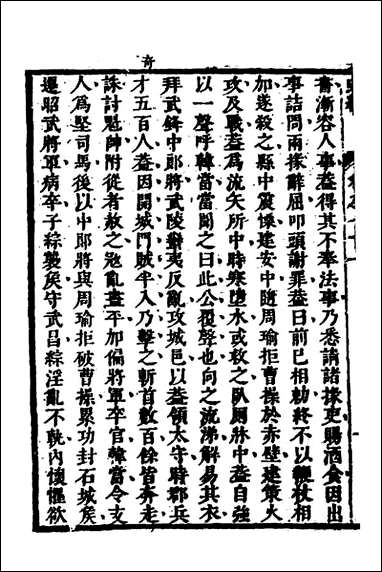 書漸容人事蓋得其不奉法事乃悉請諸掾吏賜酒食因出
事詰問兩掾辭屈叩頭謝罪蓋曰前已相勑終不以鞭杖相
加遂殺之縣中震慄建安中隨周瑜拒曹操於赤壁建策火
攻及戰蓋爲流矢所中時寒墮水或救之臥厠牀中蓋自强
以一聲呼韓當當聞之曰此公覆聲也向之流涕解易其衣
拜武鋒中郎將武陵蠻夷反亂攻城邑以蓋領太守時郡兵
才五百人蓋因開城門賊半入乃擊之斬首數百餘皆奔走
誅討魁帥附從者赦之寇亂盡平加偏將軍卒官韓當令支
人爲堅司馬後以中郎將與周瑜拒破曹操累功封石城矦
遷昭武將軍病卒子綜襲矦守武昌綜淫亂不軌內懷懼欲
奇